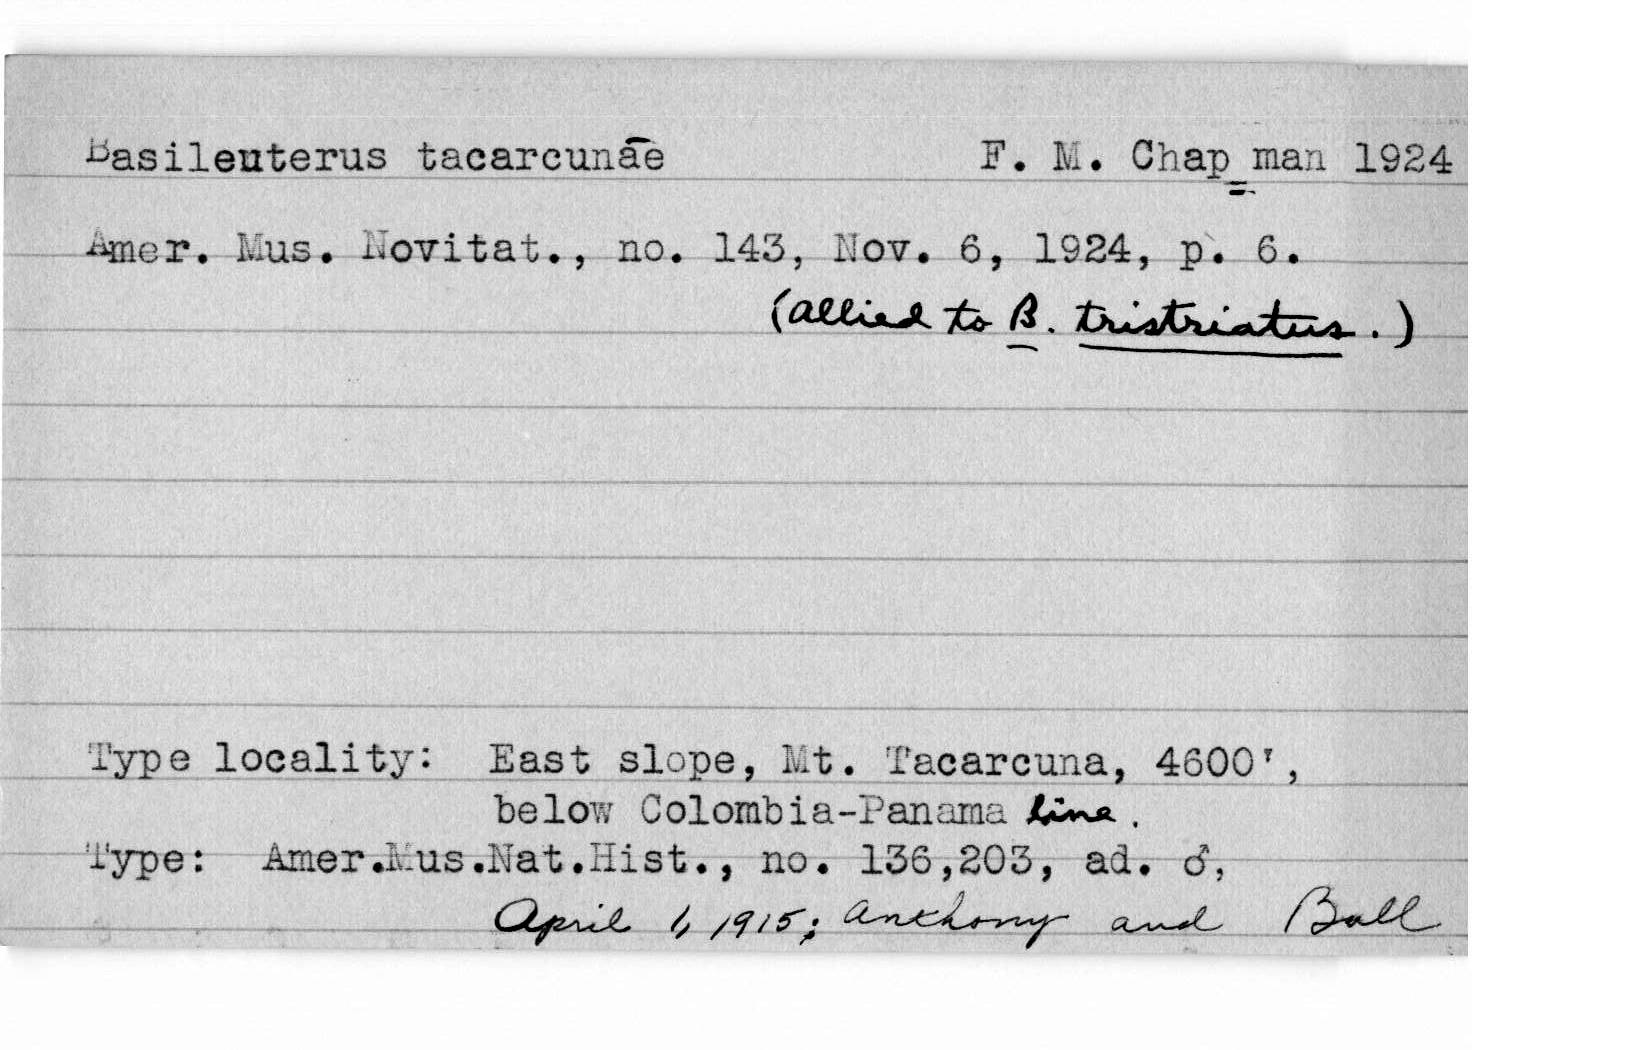 Basileuterus tacarcunae F. M. Chap=man 1924
Amer. Mus. Novitat., no. 143, Nov. 6, 1924, p. 6.
(allied to B. tristriatus.)
Type locality: East slope, Mt. Tacarcuna, 4600',
below Colombia-Panama line.
Type: Amer.Mus.Nat.Hist., no. 136,203, ad. ♂,
April 1, 1915; Anthony and Ball